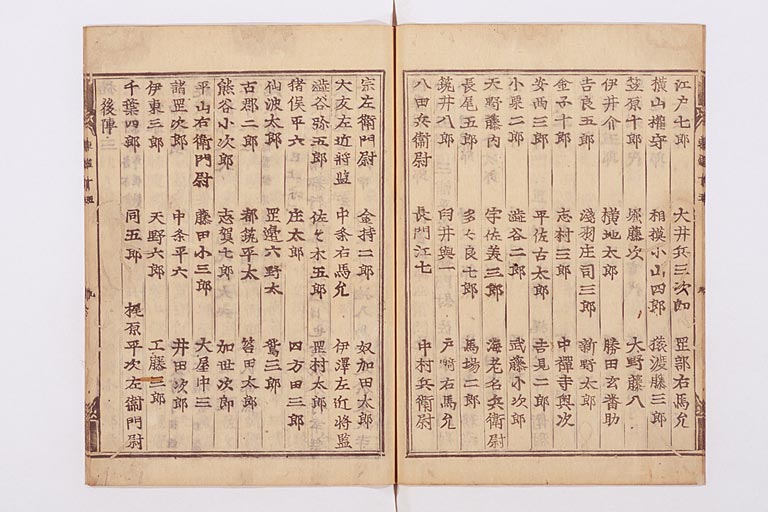 江戸七郎 大井兵三次郎 罡部右馬允
横山權守 相摸小山四郎 猿渡藤三郎
笠原十郎 堀藤次 大野藤八
伊井介 横地太郎 勝田玄番助
吉良五郎 淺羽庄司三郎 新野太郎
金子十郎 志村三郎 中禪寺奥次
安西三郎 平佐古太郎 吉見二郎
小栗二郎 澁谷二郎 武藤小次郎
天野藤内 宇佐美三郎 海老名兵衛尉
長尾五郎 多々良七郎 馬場二郎
筑井八郎 臼井與一 戸崎右馬允
八田兵衛尉 長門江七 中村兵衛尉
宗左衛門尉 金持二郎 奴加田太郎
大友左近將監 中条右馬允 伊澤左近將監
澁谷弥五郎 佐々木五郎 罡村太郎
猪俣平六 庄太郎 四方田三郎
仙波太郎 罡邉六野太 鴛三郎
古郡二郎 都筑平太 筥田太郎
熊谷小次郎 志賀七郎 加世次郎
平山右衛門尉 藤田小三郎 大屋中三
諸罡次郎 中条平六 井田次郎
伊東三郎 天野六郎 工藤三郎
千葉四郎 同五郎 梶原平次左衛門尉
後陣